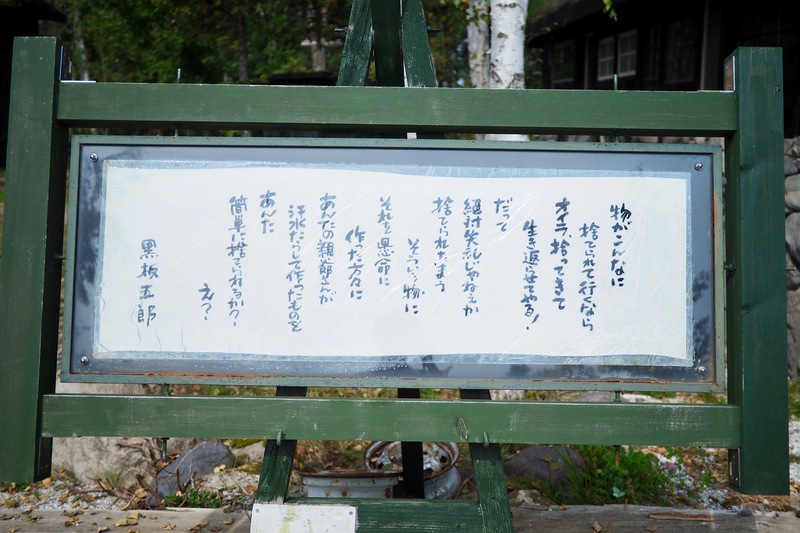 物がこんなに
捨てられて行くなら
オイラ、拾ってきて
生き返らせてやる！
だって
絶対失礼じゃねえか
捨てられちまう
そういう物に
それを懸命に
作った方々に
あんたの親爺さんが
汗水たらして作ったものを
あんた
簡単に捨てられるか？
え？
黒板五郎